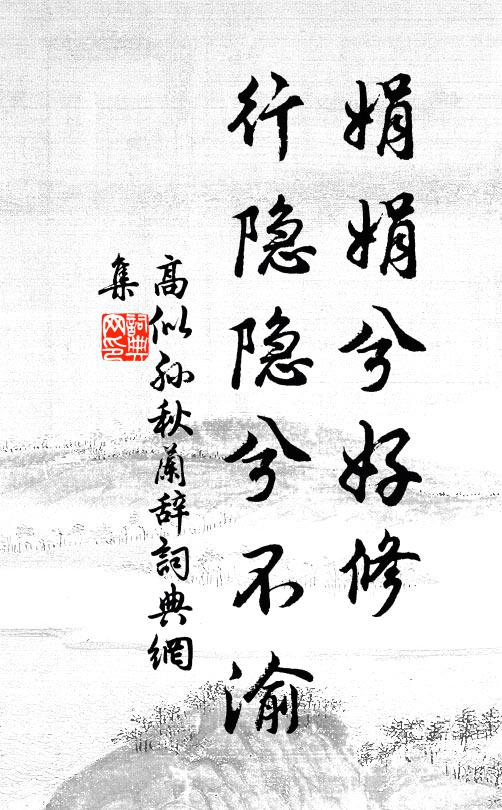 娟娟兮好修
行隐隐兮不渝
高似孙秋蘭辞詞典網
集
詞典網印